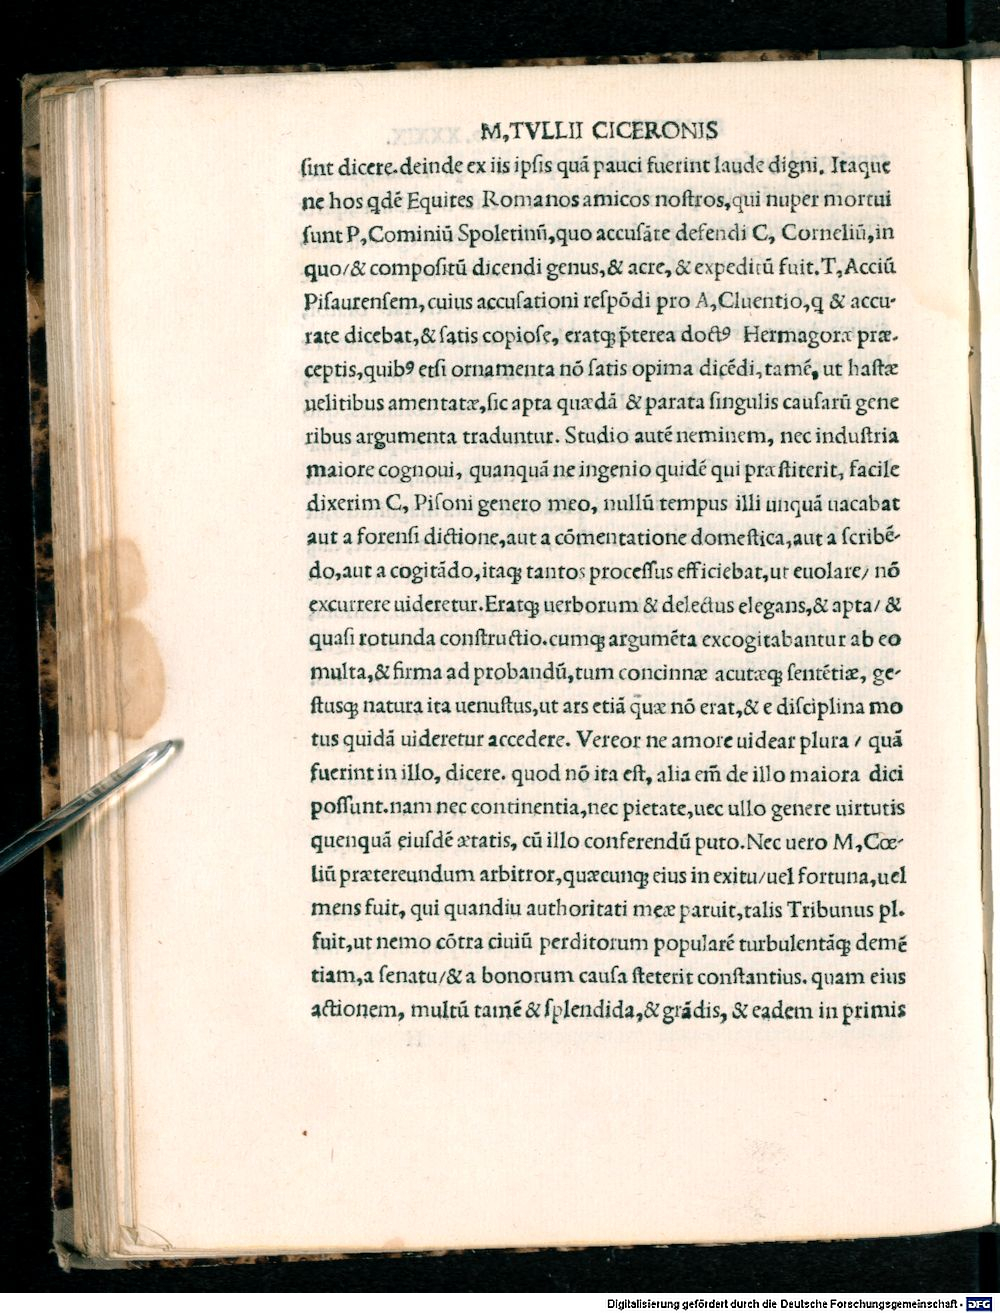 M,TVLLII CICERONIS
ſint dicere.deinde ex iis ipſis quā pauci fuerint laude digni. Itaque
ne hos qdē Equites Romanos amicos noſtros,qui nuper mortui
ſunt P,Cominiū Spoletinū,quo accuſāte defendi C, Corneliū,in
quo/& compoſitū dicendi genus,& acre, & expeditū fuit.T,Acciū
Piſaurenſem,cuius accuſationi reſpōdi pro A,Cluentio,q & accu-
rate dicebat,& ſatis copioſe, eratqꝫ p̄terea doctꝰ Hermagoræ præ-
ceptis,quibꝰ etſi ornamenta nō ſatis opima dicēdi,tamē, ut haſtæ
uelitibus amentatæ,ſic apta quædā & parata ſingulis cauſarū gene
ribus argumenta traduntur. Studio autē neminem, nec induſtria
maiore cognoui, quanquā ne ingenio quidē qui præſtiterit, facile
dixerim C, Piſoni genero meo, nullū tempus illi unquā uacabat
aut a forenſi dictione,aut a cōmentatione domeſtica,aut a ſcribē-
do,aut a cogitādo,itaqꝫ tantos proceſſus efficiebat,ut euolare/ nō
excurrere uideretur.Eratqꝫ uerborum & delectus elegans,& apta/ &
quaſi rotunda conſtructio.cumqꝫ argumēta excogitabantur ab eo
multa,& firma ad probandū,tum concinnæ acutæqꝫ ſentētiæ, ge-
ſtusqꝫ natura ita uenuſtus,ut ars etiā quæ nō erat,& e diſciplina mo
tus quidā uideretur accedere. Vereor ne amore uidear plura / quā
fuerint in illo, dicere. quod nō ita eſt, alia em̄ de illo maiora dici
poſſunt.nam nec continentia,nec pietate,uec ullo genere uirtutis
quenquā eiuſdē ætatis, cū illo conferendū puto.Nec uero M,Cœ-
liū prætereundum arbitror,quæcunqꝫ eius in exitu/uel fortuna,uel
mens fuit, qui quandiu authoritati meæ paruit,talis Tribunus pl.
fuit,ut nemo cōtra ciuiū perditorum popularē turbulentāqꝫ demē
tiam,a ſenatu/& a bonorum cauſa ſteterit conſtantius. quam eius
actionem, multū tamē & ſplendida,& grādis, & eadem in primis
Digitalisierung gefördert durch die Deutsche Forschungsgemeinschaft - DFG